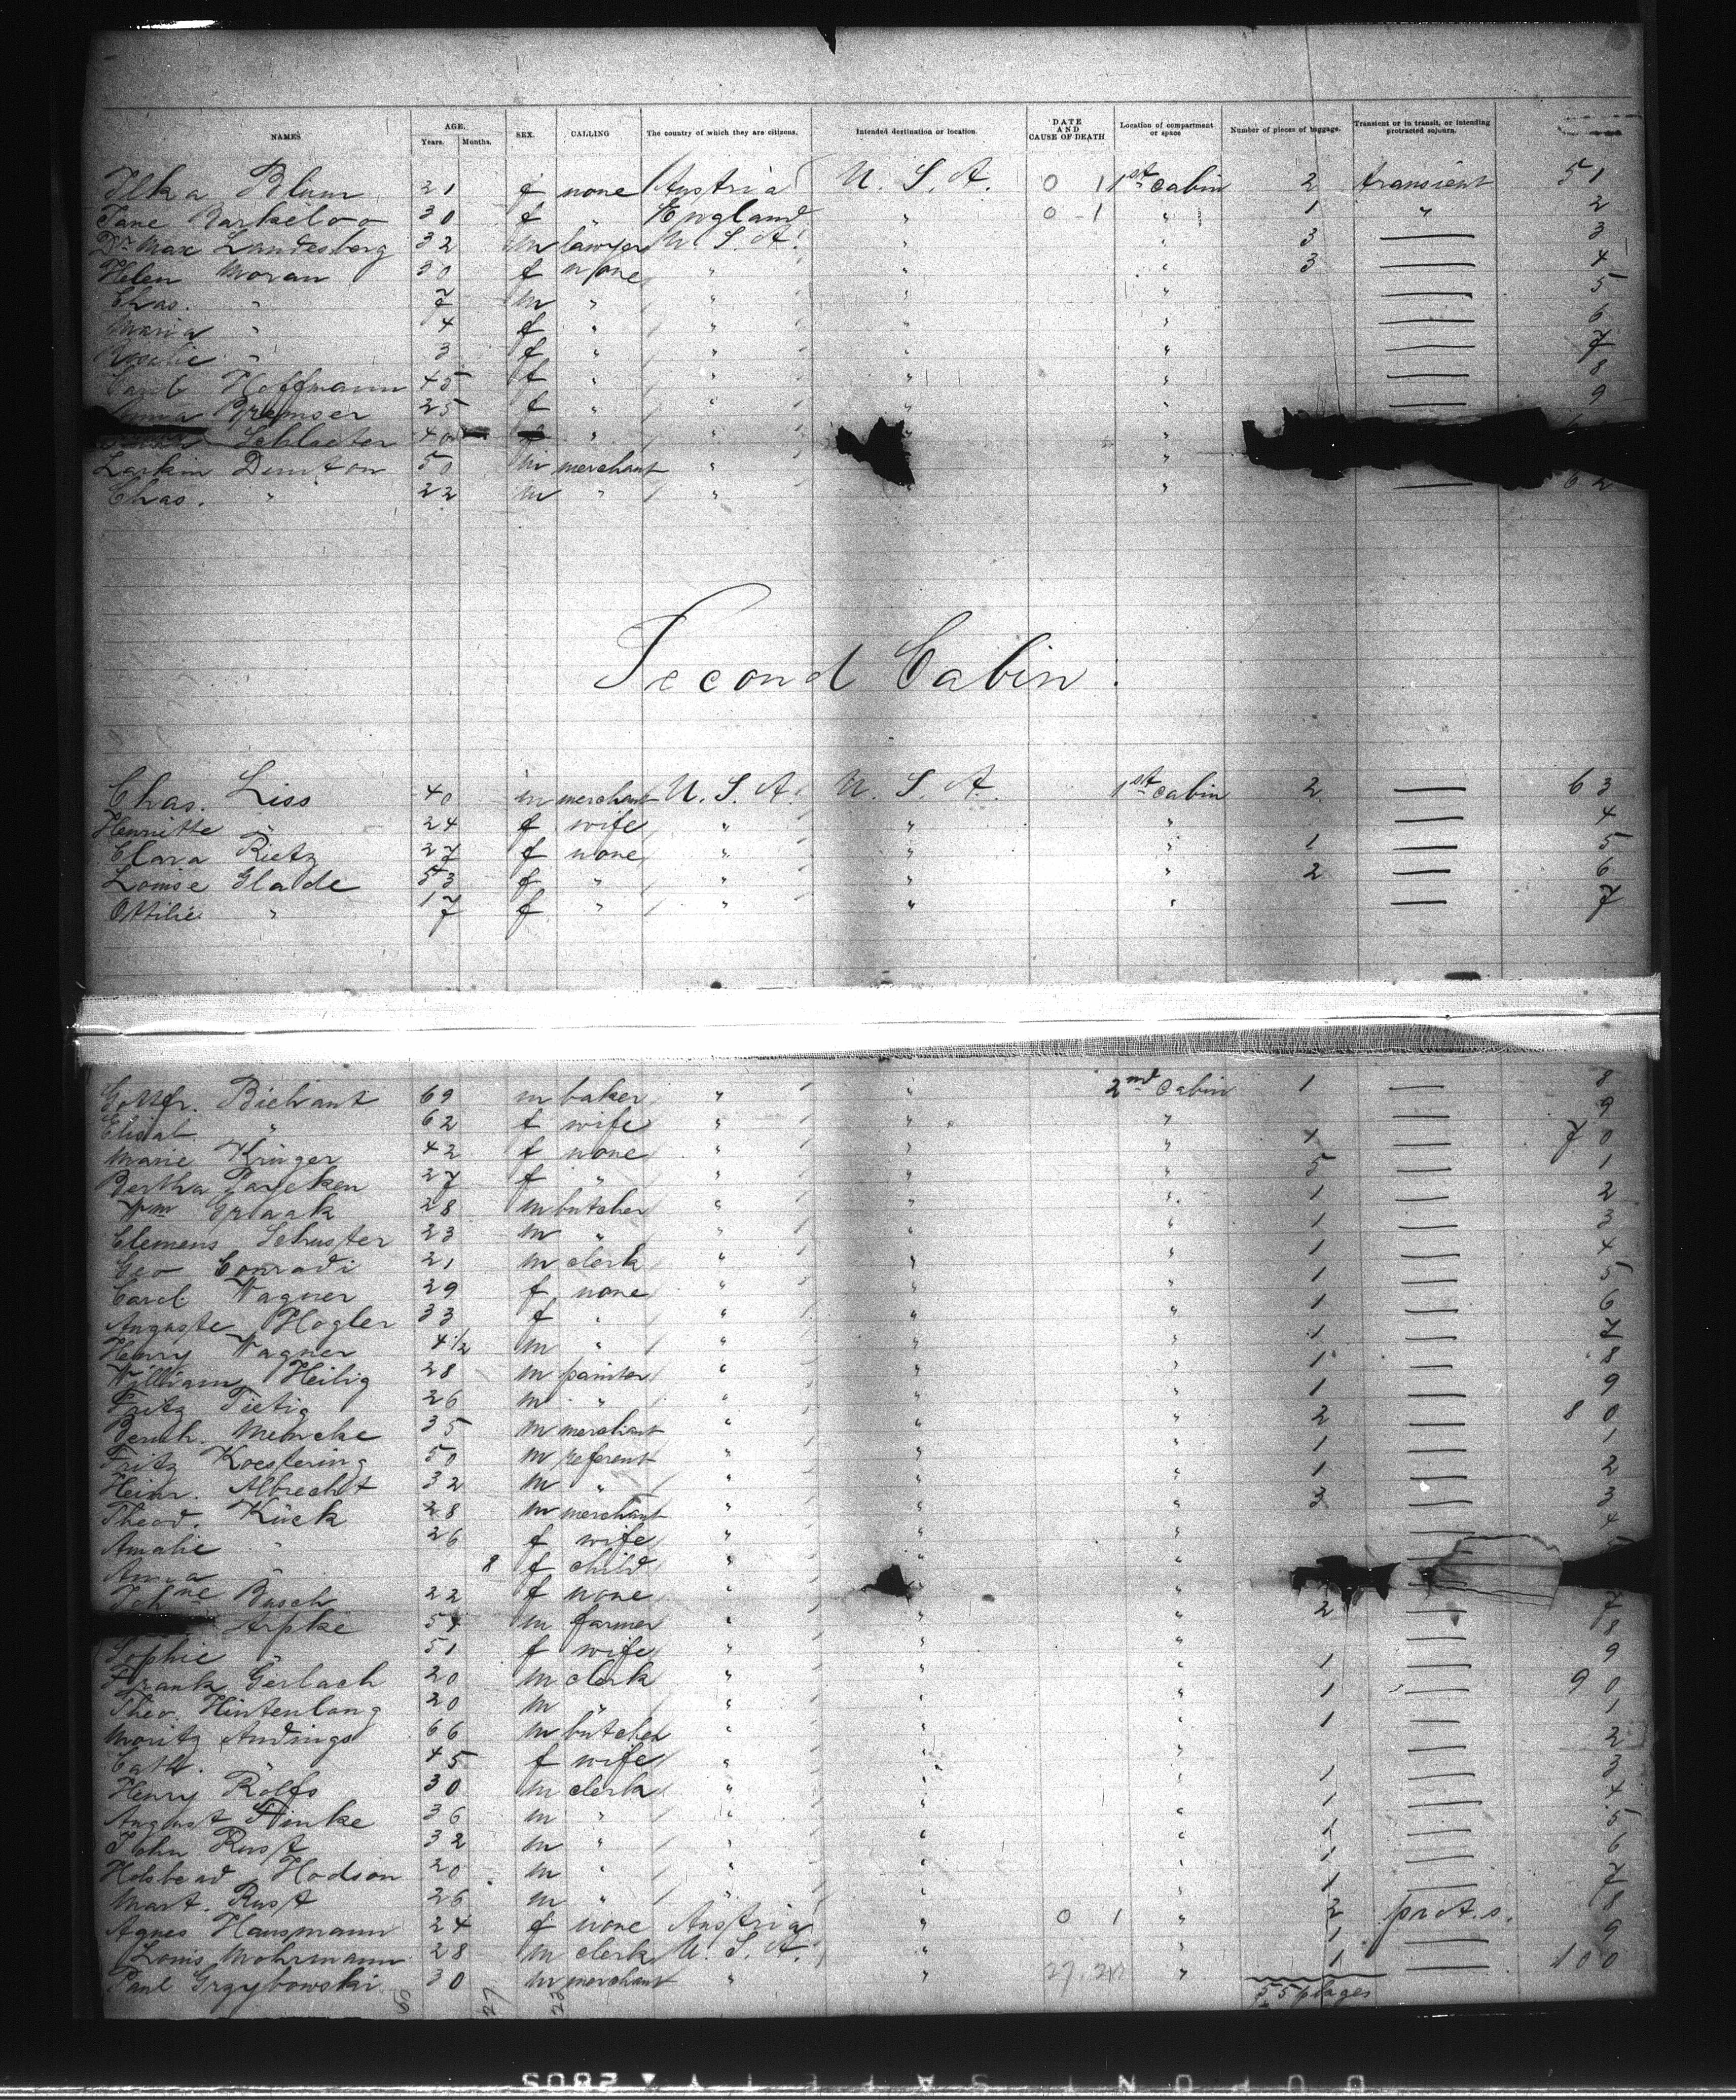 NAMES AGE. Years. Months. SEX. CALLING The country of which they are citizens. Intended destination or location. DATE AND CAUSE OF DEATH Location of compartment or space Number of pieces of baggage. Transient or in transit, or intending protracted sojourn.
Ilka Blum 21 f none Austria U. S. A. 0 1 1st cabin 2 transient 51
Jane Barkeloo 30 f " England " 0 1 " 1 " 2
Dr Max Landesberg 32 m lawyer U. S. A. " " 3 — 3
Helen Moran 30 f none " " " 3 — 4
Chas. " 7 m " " " " — 5
Maria " 4 f " " " " — 6
" 3 f " " " " — 7
Carol. Hoffmann 45 f " " " " — 8
Bremser 25 f " " " " — 9
Schlaeter 40 " " " "
Larkin Denton 50 m merchant " "
Chas. " 22 m " " " " — 62
Second Cabin.
Chas. Liss 40 m merchant U. S. A. U. S. A. 1st cabin 2 — 63
Henriette " 24 f wife " " " — 4
Clara Rietz 27 f none " " " 1 — 5
Louise Glade 53 f " " " " 2 — 6
Ottilie " 17 f " " " " — 7
Gottfr. Bichant 69 m baker " " 2nd Cabin 1 — 8
Elisab " 62 f wife " " " — 9
Marie Krüger 42 f none " " " — 70
Bertha 27 f " " " " 5 — 1
Wm Graak 28 m butcher " " " 1 — 2
Clemens Schuster 23 m " " " " 1 — 3
Geo Conradi 21 m clerk " " " 1 — 4
Carol. Wagner 29 f none " " " 1 — 5
Auguste Hogler 33 f " " " " 1 — 6
Henry Wagner 4 1/2 m " " " " 1 — 7
William Heilig 28 m painter " " " 1 — 8
Fritz Tietig 26 m " " " " 1 — 9
Bernh. Meincke 35 m merchant " " " 2 — 80
Fritz Koestering 50 m referent " " " 1 — 1
Heinr. Albrecht 32 m " " " " 1 — 2
Theod. Kück 28 m merchant " " " 3 — 3
Amalie " 26 f wife " " " — 4
Anna " 8 f child " " " —
Johne Busch 22 f none " " " —
Arpke 54 m farmer " " " 2 — 7
Sophie " 51 f wife " " " — 8
Frank Gerlach 20 m clerk " " " 1 — 9
Theo. Hintenlang 20 m " " " " 1 — 90
Moritz Andings 66 m butcher " " " 1 — 1
Cath. " 45 f wife " " " — 2
Henry Rolfs 30 m clerk " " " 1 — 3
August Finke 36 m " " " " 1 — 4
John Rust 32 m " " " " 1 — 5
Hodson 20 m " " " " 1 — 6
Mart. Rust 26 m " " " " 1 — 7
Agnes Hausmann 24 f none Austria " 0 1 " 2 prot. s. 8
Louis Mohrmann 28 m clerk U. S. A. " " 1 — 9
Paul Grzybowski 30 m merchant " " " 1 — 100
27 23
55 plages
DUPONT SAFETY ▲ 2805